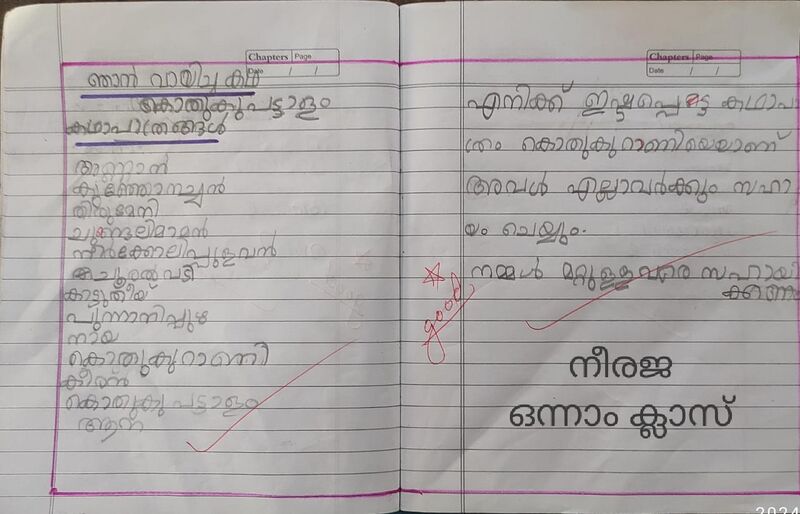 Chapters Page
Date / /
ഞാൻ വായിച്ച കഥ
കൊതുകുപട്ടാളം
കഥാപാത്രങ്ങൾ
അണ്ണാൻ
കുഞ്ഞോനച്ചൻ
തിരുമേനി
ചുണ്ടെലിമാമൻ
നീർക്കോലിപ്പുളവൻ
കാട്ടുതീയ്
പുന്നാനിപ്പുഴ
നായ
കൊതുകുറാണി
കീരൻ
കൊതുകു പട്ടാളം
ആന
Chapters Page
Date / /
എനിക്ക് ഇഷ്ടപ്പെട്ട കഥാപാ
ത്രം കൊതുകുറാണിയെയാണ്
അവൾ എല്ലാവർക്കും സഹാ
യം ചെയ്യും.
നമ്മൾ മറ്റുള്ളവരെ സഹായി
ക്കണം
good
നീരജ
ഒന്നാം ക്ലാസ്
2024